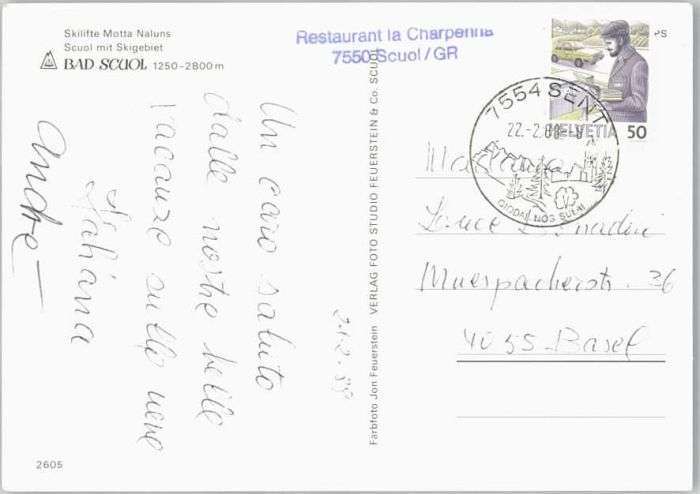 Skilifte Motta Naluns
Scuol mit Skigebiet
BAD SCUOL 1250–2800 m
Restaurant la Charpenna
7550 Scuol/GR
PS
7554 SENT
22.-2.88-8
HELVETIA 50
GIODAI NOS SULAI
Un caro saluto
dalle nostre belle
vacanze sulla neve
Fabiana
André
21.2.88
Muespacherstr. 36
4055 Basel
VERLAG FOTO STUDIO FEUERSTEIN & Co. SCUOL
Farbfoto Jon Feuerstein
2605